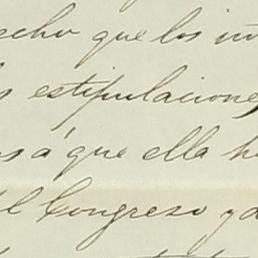 echo que los in
s estipulaciones
s á que ella h
l Congreso y d